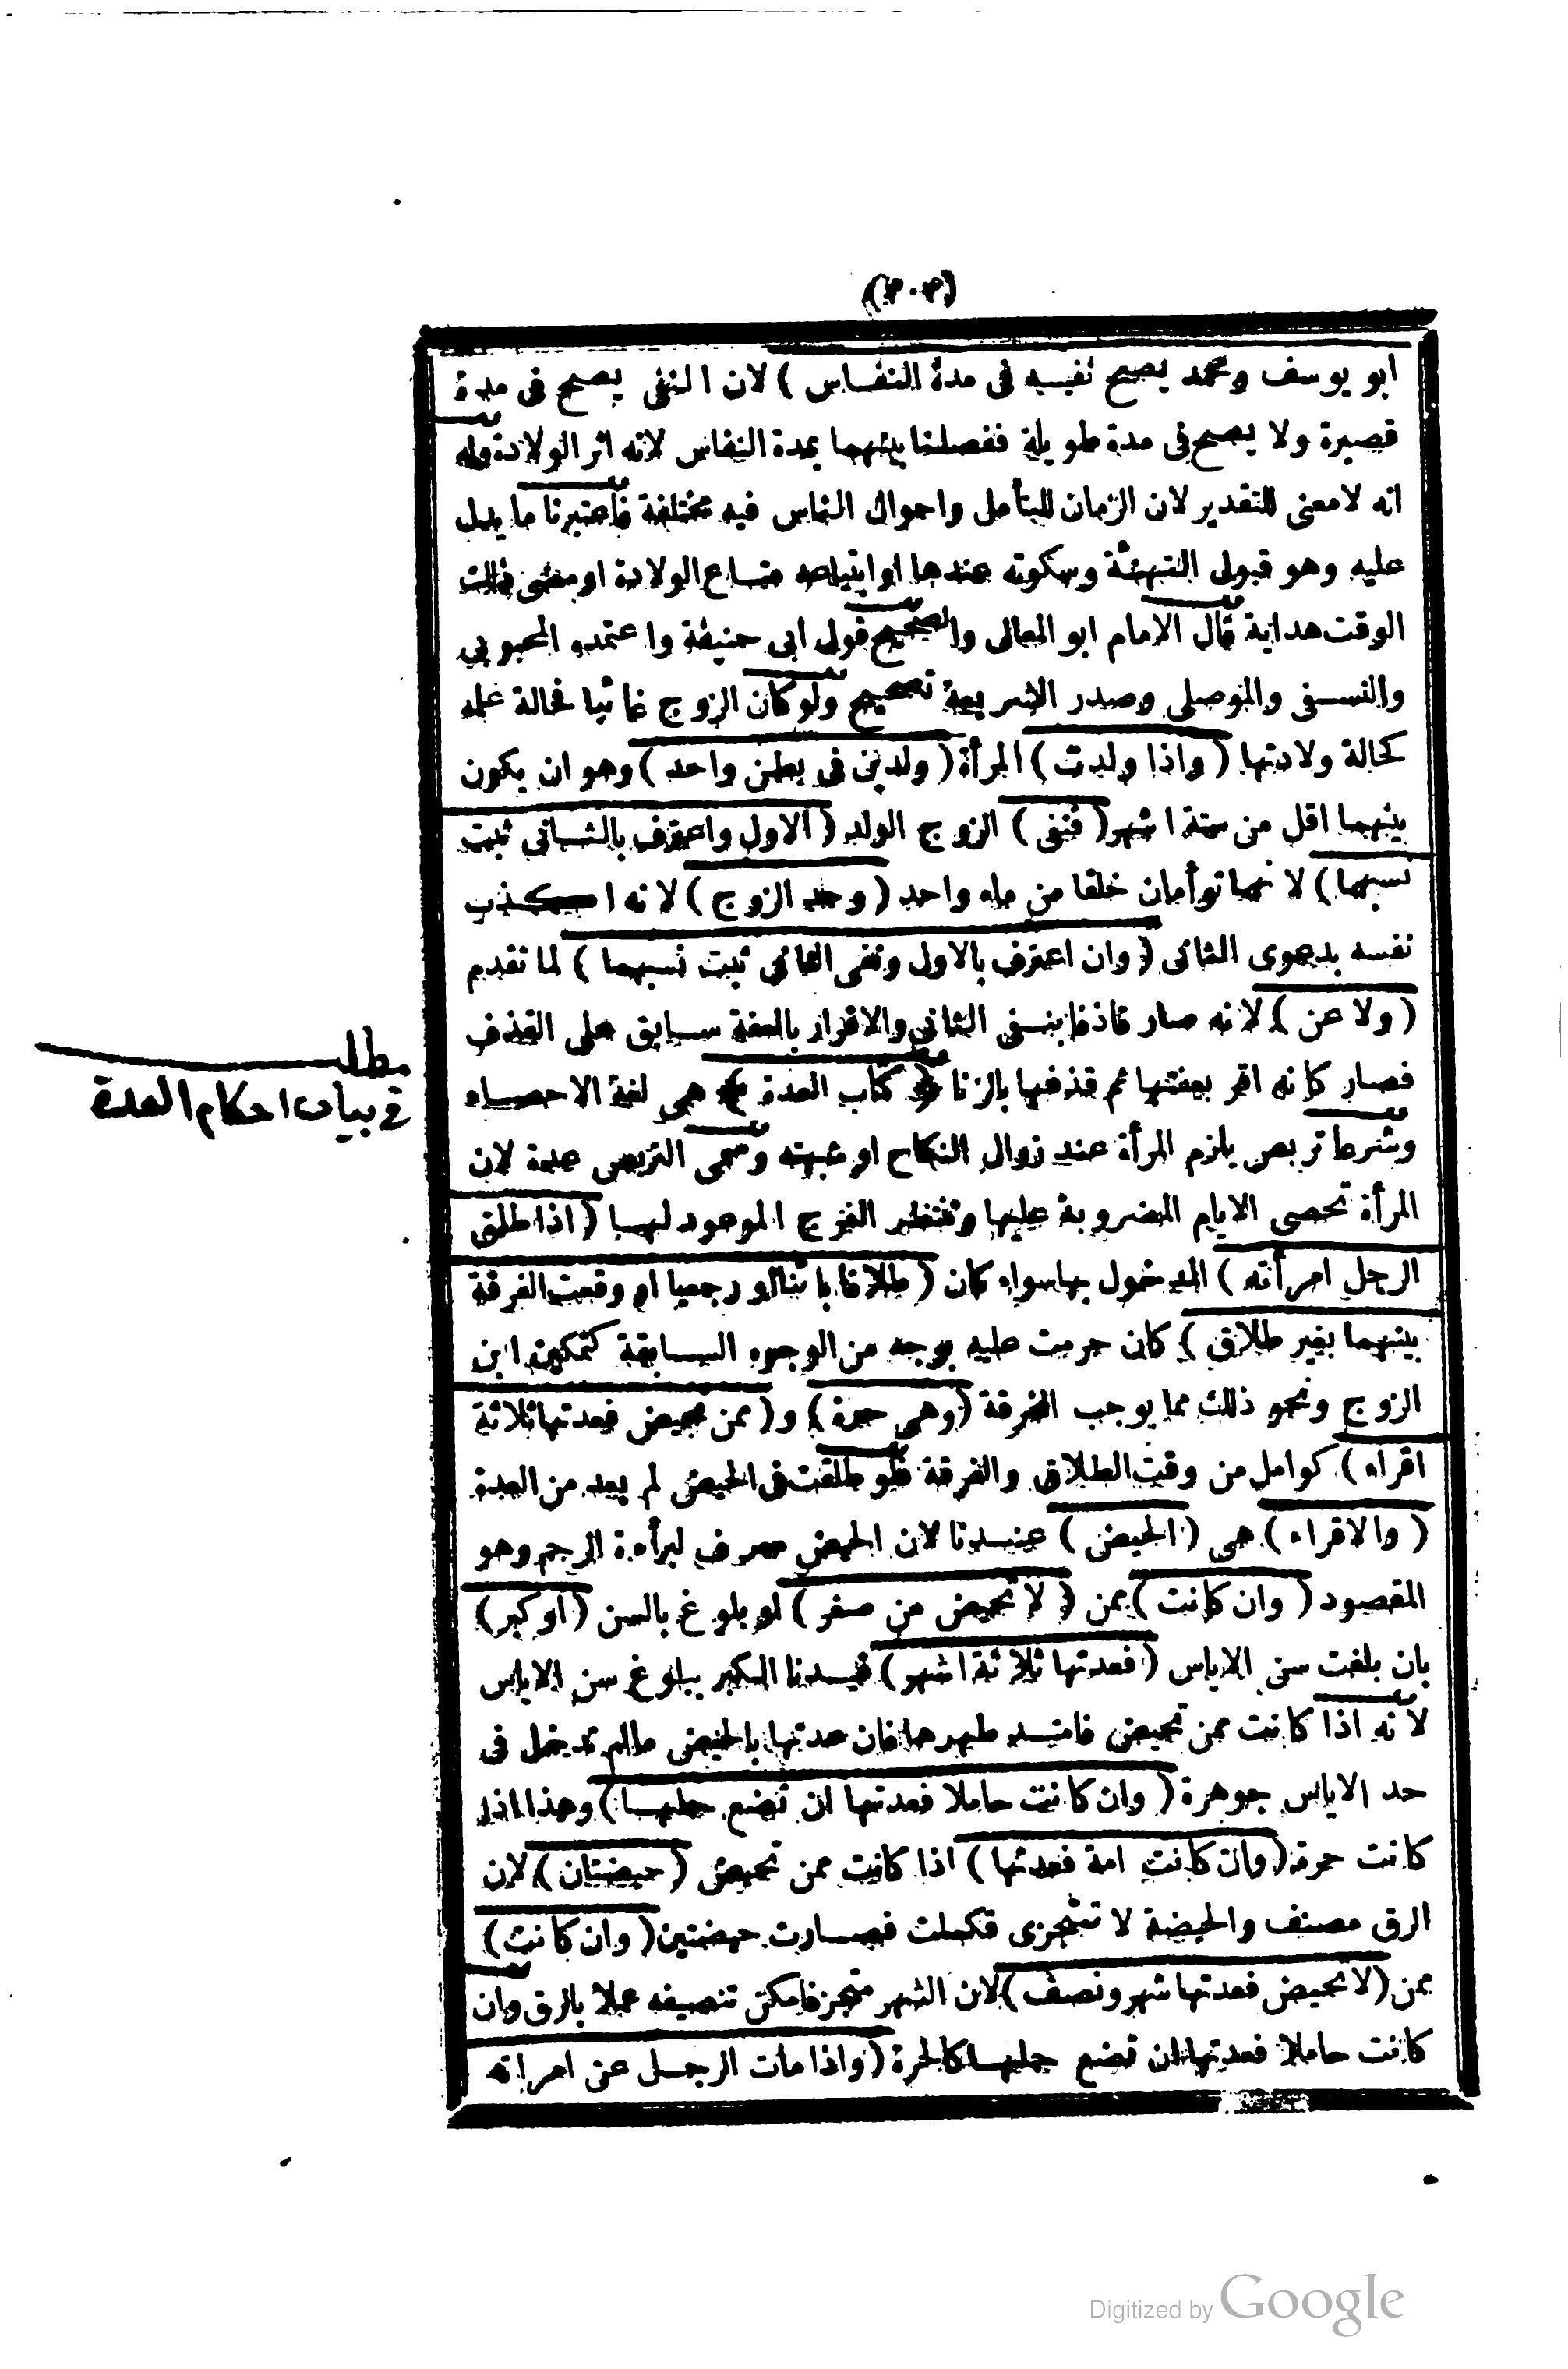 ابو يوسف ومحمد يصح نفيه فى مدة النفاس ) لان النفى يصح فى مدة
قصيرة ولا يصح فى مدة طويلة ففصلنا بينهما بمدة النفاس لانه اثر الولادة وله
انه لا معنى للتقدير لان الزمان للتأمل واحوال الناس فيه مختلفة فاعتبرنا ما يدل
عليه وهو قبول التهنئة وسكوته عندها او ابتياعه متاع الولادة او مضى ذلك
الوقت هداية قال الامام ابو المعالى والصحيح قول ابى حنيفة واعتمده المحبوبى
والنسفى والموصلى وصدر الشريعة تصحيح ولو كان الزوج غائبا فحالة علمه
كحالة ولادتها ( واذا ولدت ) المرأة ( ولدين فى بطن واحد ) وهو ان يكون
بينهما اقل من ستة اشهر ( فنفى ) الزوج الولد ( الاول واعترف بالثانى ثبت
نسبهما ) لانهما توأمان خلقا من ماء واحد ( وحد الزوج ) لانه اكذب
نفسه بدعوى الثانى ( وان اعترف بالاول ونفى الثانى ثبت نسبهما ) لما تقدم
( ولاعن ) لانه صار قاذفا بنفى الثانى والاقرار بالعفة سابق على القذف
فصار كانه اقر بعفتها ثم قذفها بالزنا ﴿ كتاب العدة ﴾ هى لغة الاحصاء
وشرعا تربص يلزم المرأة عند زوال النكاح او شبهته وسمى التربص عدة لان
المرأة تحصى الايام المضروبة عليها وتنتظر الفرج الموعود لها ( اذا طلق
الرجل امرأته ) المدخول بها سواء كان ( طلاقا بائنا او رجعيا او وقعت الفرقة
بينهما بغير طلاق ) كان حرمت عليه بوجه من الوجوه السابقة كتمكين ابن
الزوج ونحو ذلك مما يوجب الفرقة ( وهى حرة ) و( ممن تحيض فعدتها ثلاثة
اقراء ) كوامل من وقت الطلاق والفرقة فلو طلقت فى الحيض لم يعد من العدة
( والاقراء ) هى ( الحيض ) عندنا لان الحيض معرف لبرأة الرحم وهو
المقصود ( وان كانت ) ممن ( لا تحيض من صغر ) او بلوغ بالسن ( او كبر )
بان بلغت سن الاياس ( فعدتها ثلاثة اشهر ) قيدنا الكبر ببلوغ سن الاياس
لانه اذا كانت ممن تحيض فامتد طهرها فان عدتها بالحيض مالم تدخل فى
حد الاياس جوهرة ( وان كانت حاملا فعدتها ان تضع حملها ) وهذا اذا
كانت حرة ( وان كانت امة فعدتها ) اذا كانت ممن تحيض ( حيضتان ) لان
الرق منصف والحيضة لا تتجزى فكملت فصارت حيضتين ( وان كانت )
ممن ( لا تحيض فعدتها شهر ونصف ) لان الشهر متجز فامكن تنصيفه عملا بالرق وان
كانت حاملا فعدتها ان تضع حملها كالحرة ( واذا مات الرجل عن امرأته
مطلب
فى بيان احكام العدة
Digitized by Google